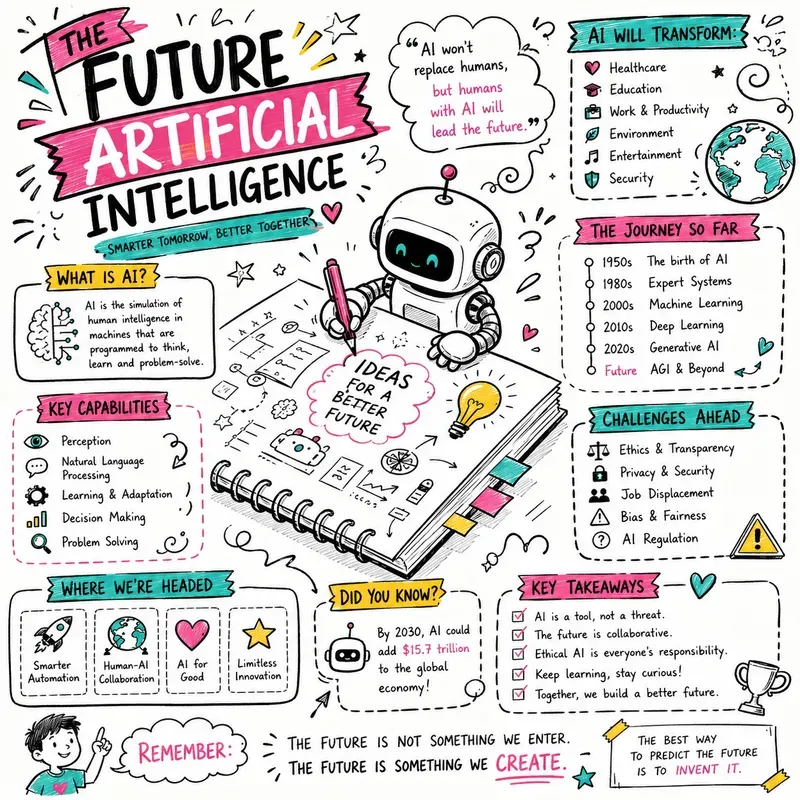 THE
FUTURE
ARTIFICIAL
INTELLIGENCE
SMARTER TOMORROW, BETTER TOGETHER
“AI won't
replace humans,
but humans
with AI will
lead the future.”
AI WILL TRANSFORM:
Healthcare
Education
Work & Productivity
Environment
Entertainment
Security
WHAT IS AI?
AI is the simulation of
human intelligence in
machines that are
programmed to think,
learn and problem-solve.
THE JOURNEY SO FAR
1950s The birth of AI
1980s Expert Systems
2000s Machine Learning
2010s Deep Learning
2020s Generative AI
Future AGI & Beyond
IDEAS
FOR A
BETTER
FUTURE
KEY CAPABILITIES
Perception
Natural Language
Processing
Learning & Adaptation
Decision Making
Problem Solving
CHALLENGES AHEAD
Ethics & Transparency
Privacy & Security
Job Displacement
Bias & Fairness
AI Regulation
WHERE WE'RE HEADED
Smarter
Automation
Human-AI
Collaboration
AI for
Good
Limitless
Innovation
DID YOU KNOW?
By 2030, AI could
add $15.7 trillion
to the global
economy!
KEY TAKEAWAYS
AI is a tool, not a threat.
The future is collaborative.
Ethical AI is everyone's responsibility.
Keep learning, stay curious!
Together, we build a better future.
REMEMBER:
THE FUTURE IS NOT SOMETHING WE ENTER.
THE FUTURE IS SOMETHING WE CREATE.
THE BEST WAY
TO PREDICT THE FUTURE
IS TO INVENT IT.